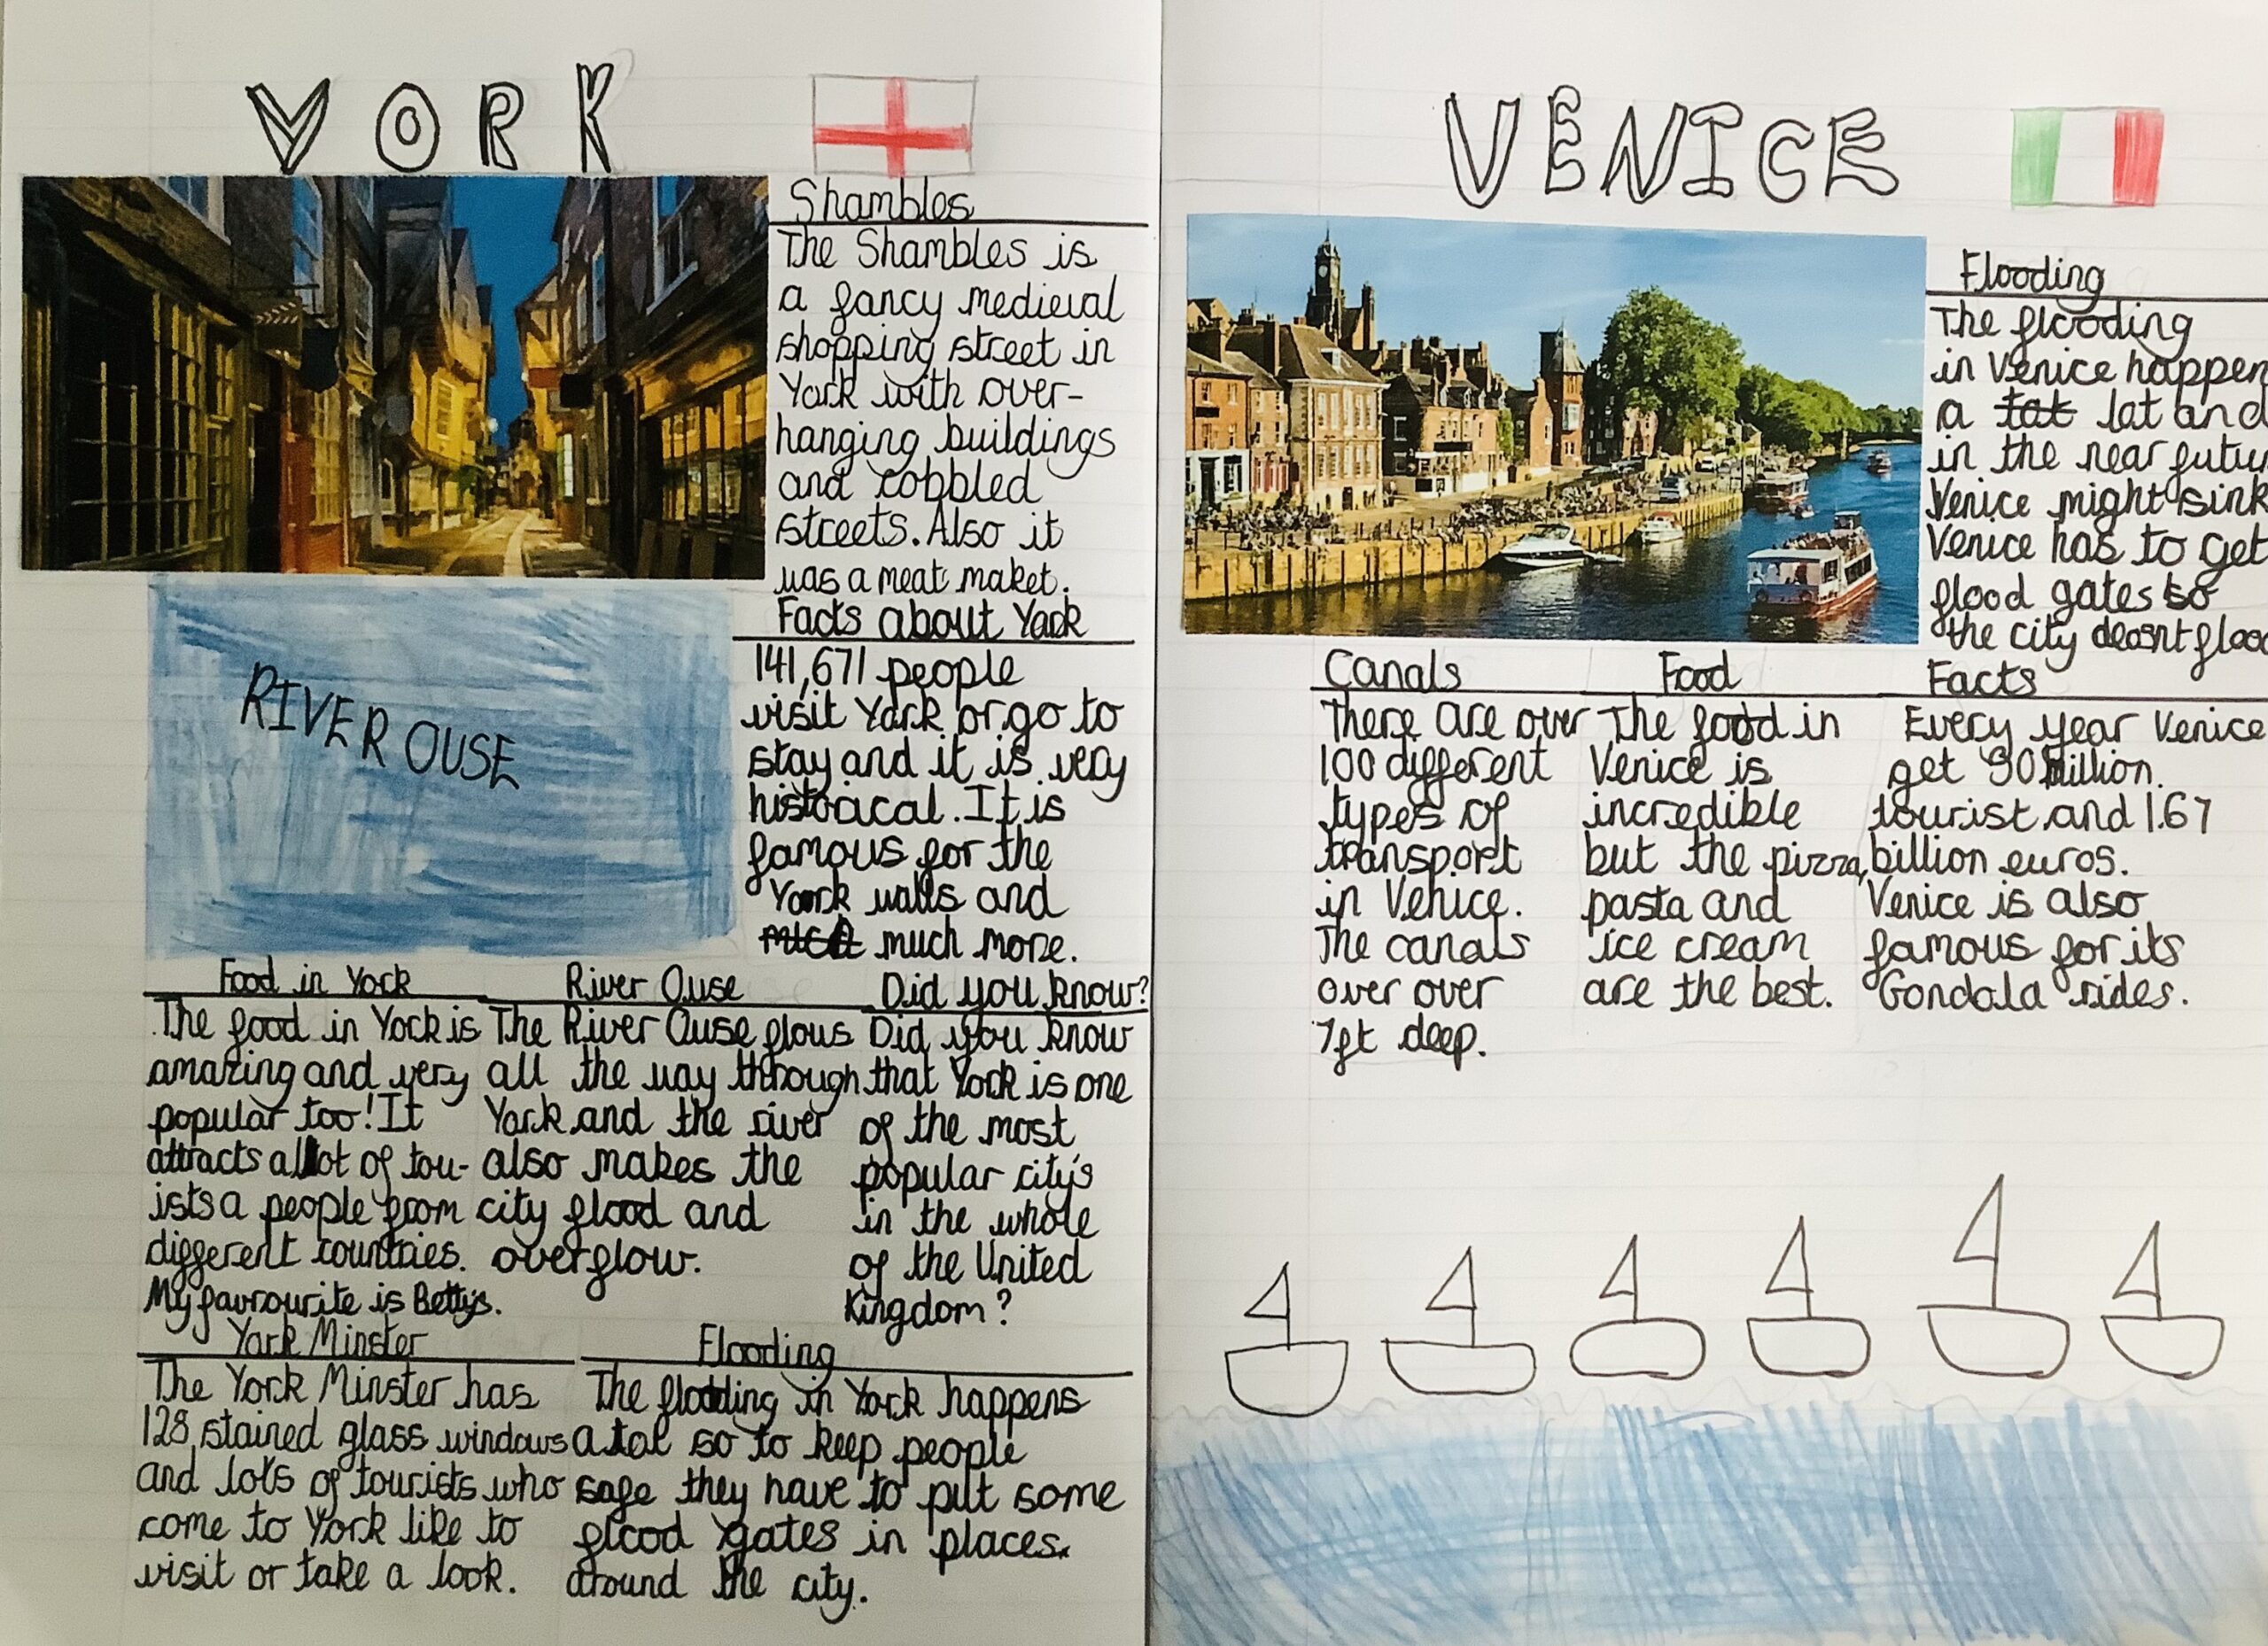 YORK
Shambles
The Shambles is
a fancy medieval
shopping street in
York with over-
hanging buildings
and cobbled
streets. Also it
was a meat maket.
Facts about York
141,671 people
visit York or go to
stay and it is very
historical. It is
famous for the
York walls and
much more.
RIVER OUSE
Food in York
The food in York is
amazing and very
popular too! It
attracts a lot of tou-
ists a people from
different countries.
My favrourite is Bettys.
River Ouse
The River Ouse flous
all the way through
York and the river
also makes the
city flood and
overflow.
Did you know?
Did you know
that York is one
of the most
popular city's
in the whole
of the United
Kingdom?
York Minster
The York Minster has
128 stained glass windows
and lots of tourists who
come to York like to
visit or take a look.
Flooding
The flooding in York happens
a lot so to keep people
safe they have to put some
flood gates in places.
around the city.
VENICE
Flooding
The flooding
in Venice happen
a tot lot and
in the near futur
Venice might sink
Venice has to get
flood gates so
the city deasnt floo
Canals
There are over
100 different
types of
transport
in Venice.
The canals
over over
7ft deep.
Food
The food in
Venice is
incredible
but the pizza,
pasta and
ice cream
are the best.
Facts
Every year Venice
get 30 million
tourist and 1.67
billion euros.
Venice is also
famous for its
Gondala rides.